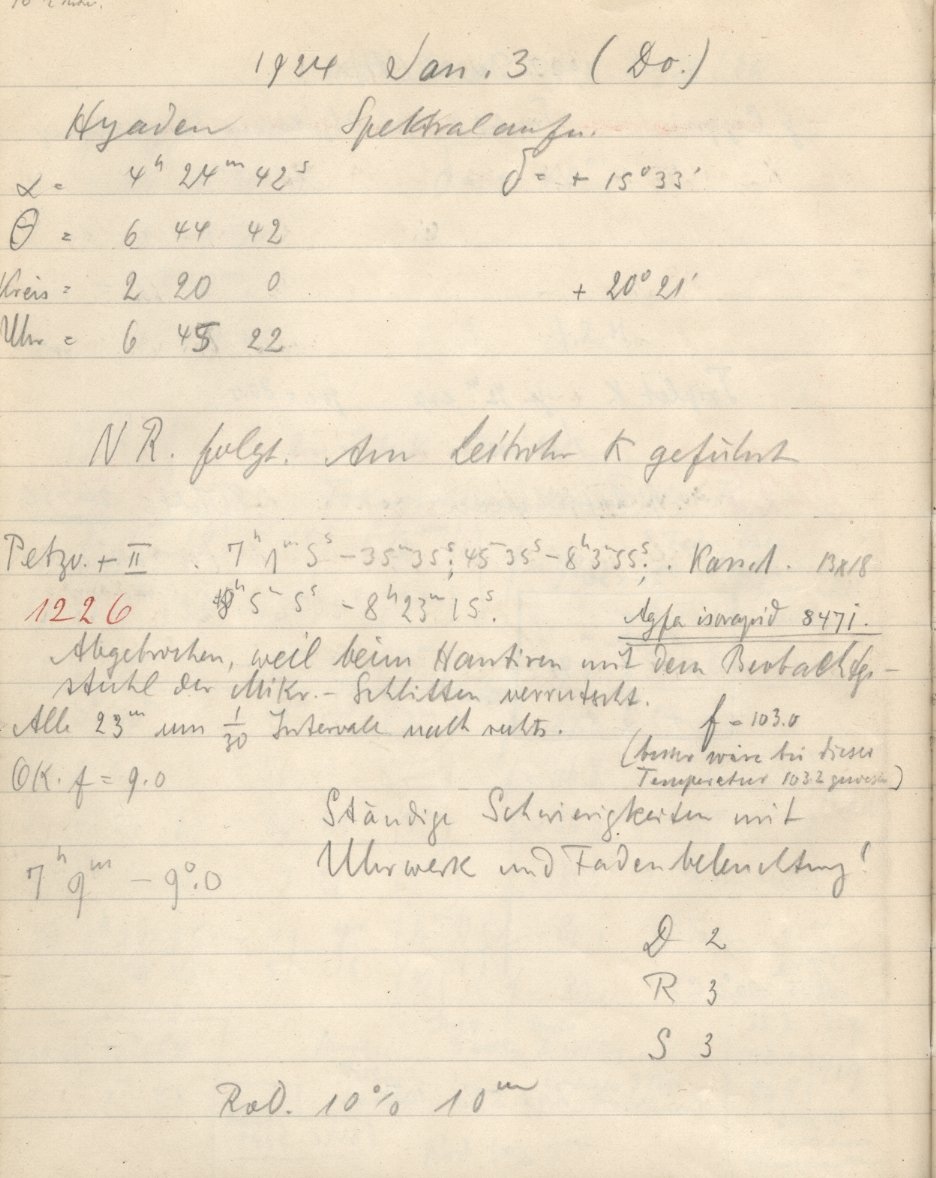 1924 Jan. 3. (Do.)
Hyaden Spektralaufn.
α = 4ʰ 24ᵐ 42ˢ δ = + 15° 33'
Θ = 6 44 42
Kreis = 2 20 0 + 20° 21'
Uhr = 6 45 22
NR. folgt. Am Leitrohr K geführt
Petzv. + II . 7ʰ 1ᵐ 5ˢ – 35ᵐ 35ˢ; 45ᵐ 35ˢ – 8ʰ 3ᵐ 55ˢ; . Kassel. 13x18
1226 8ʰ 5ᵐ 5ˢ – 8ʰ 23ᵐ 15ˢ. Agfa isorapid 8471.
Abgebrochen, weil beim Hantiren mit dem Beobachtgs-
stuhl der Mikr.- Schlitten verrutscht.
Alle 23ᵐ um 1/30 Intervale nach rechts. f = 103.0
OK. f = 9.0 (besser wäre bei dieser
Temperatur 103.2 gewesen)
Ständige Schwierigkeiten mit
7ʰ 9ᵐ – 9°.0 Uhrwerk und Fadenbeleuchtung!
D 2
R 3
S 3
Rod. 10% 10ᵐ